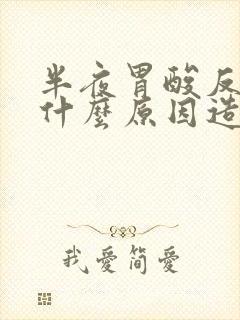 半夜胃酸反
什麼原因造
我愛簡愛